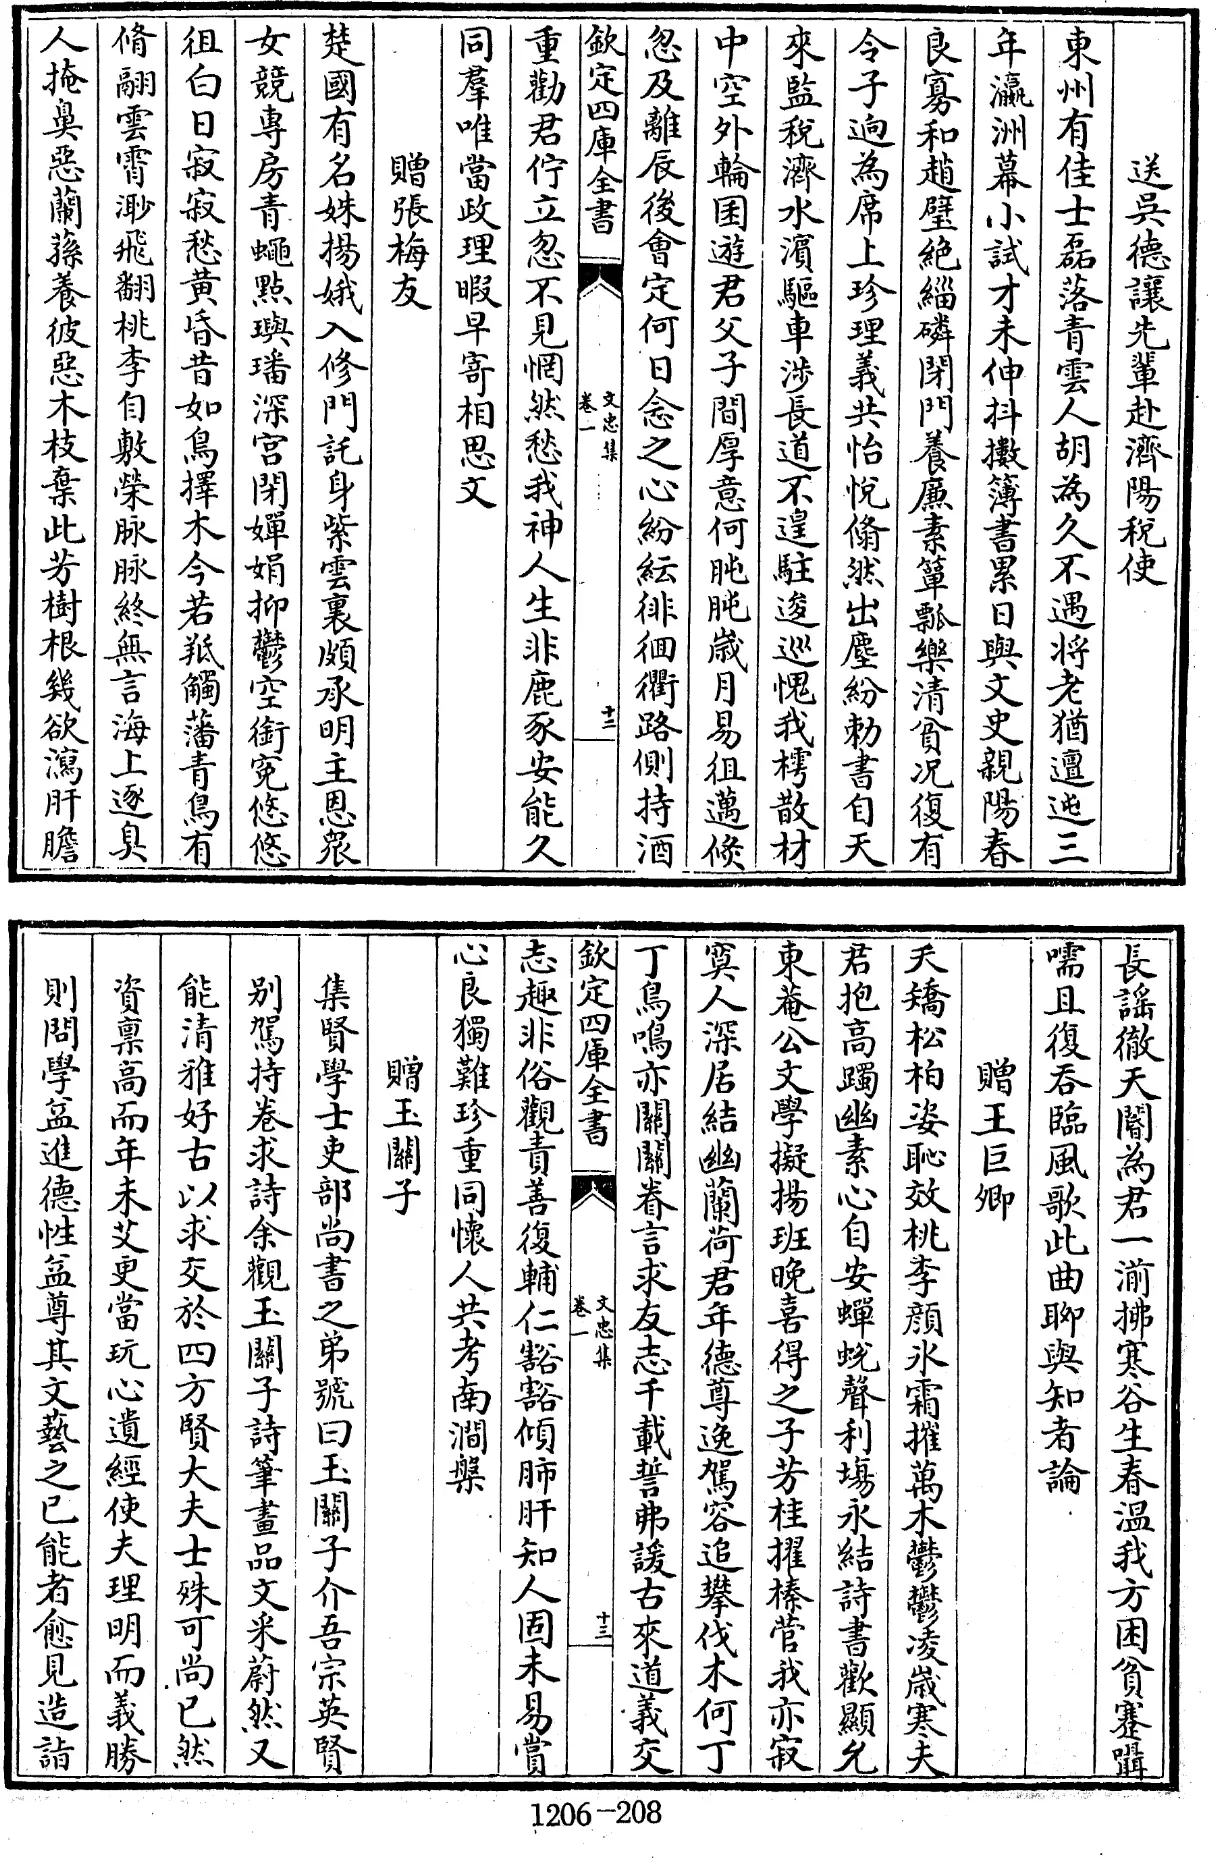 送吳德讓先輩赴濟陽稅使
東州有佳士磊落青雲人胡為久不遇將老猶邅迍三
年瀛洲幕小試才未伸抖擻簿書累日與文史親陽春
良寡和趙璧絶緇磷閉門養廉素簞瓢樂清貧况復有
令子逈為席上珍理義共怡悅翛然出塵紛勅書自天
來監稅濟水濱驅車涉長道不遑駐逡巡愧我樗散材
中空外輪囷遊君父子間厚意何肫肫歲月易徂邁倐
忽及離辰後會定何日念之心紛紜徘徊衢路側持酒
欽定四庫全書
文忠集
卷一
十二
重勸君佇立忽不見惘然愁我神人生非鹿豕安能久
同羣唯當政理暇早寄相思文
贈張梅友
楚國有名姝揚娥入修門託身紫雲裏頗承明主恩衆
女競專房青蠅點璵璠深宮閉嬋娟抑鬱空銜寃悠悠
徂白日寂寂愁黃昏昔如鳥擇木今若羝觸藩青鳥有
脩翮雲霄渺飛翻桃李自敷榮脉脉終無言海上逐臭
人掩鼻惡蘭蓀養彼惡木枝棄此芳樹根幾欲瀉肝膽
長謡徹天閽為君一湔拂寒谷生春温我方困貧蹇囁
嚅且復吞臨風歌此曲聊與知者論
贈王巨卿
夭矯松柏姿恥效桃李顔氷霜摧萬木鬱鬱凌歲寒夫
君抱高躅幽素心自安蟬蛻聲利場永結詩書歡顯允
東菴公文學擬揚班晚喜得之子芳桂擢榛菅我亦寂
寞人深居結幽蘭荷君年德尊逸駕容追攀伐木何丁
丁鳥鳴亦關關眷言求友志千載誓弗諼古來道義交
欽定四庫全書
文忠集
卷一
十三
志趣非俗觀責善復輔仁豁豁傾肺肝知人固未易賞
心良獨難珍重同懷人共考南澗槃
贈玉關子
集賢學士吏部尚書之弟號曰玉關子介吾宗英賢
别駕持卷求詩余觀玉關子詩筆畫品文采蔚然又
能清雅好古以求交於四方賢大夫士殊可尚已然
資稟高而年未艾更當玩心遺經使夫理明而義勝
則問學益進德性益尊其文藝之已能者愈見造詣
1206-208